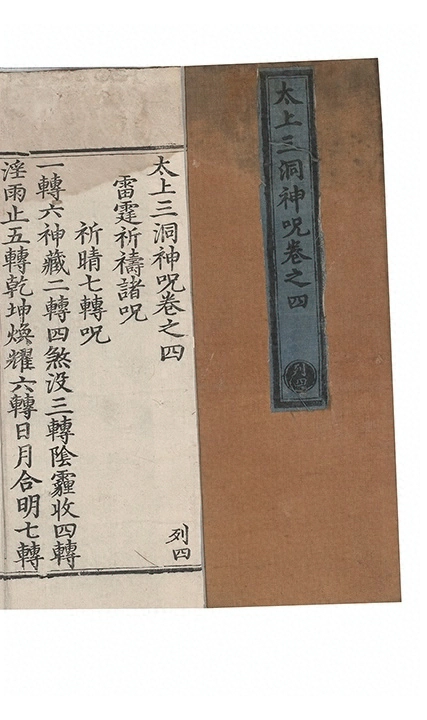 太上三洞神呪卷之四
列四
太上三洞神呪卷之四
列四
雷霆祈禱諸呪
祈晴七轉呪
一轉六神藏二轉四煞没三轉陰霾收四轉
淫雨止五轉乾坤煥耀六轉日月合明七轉